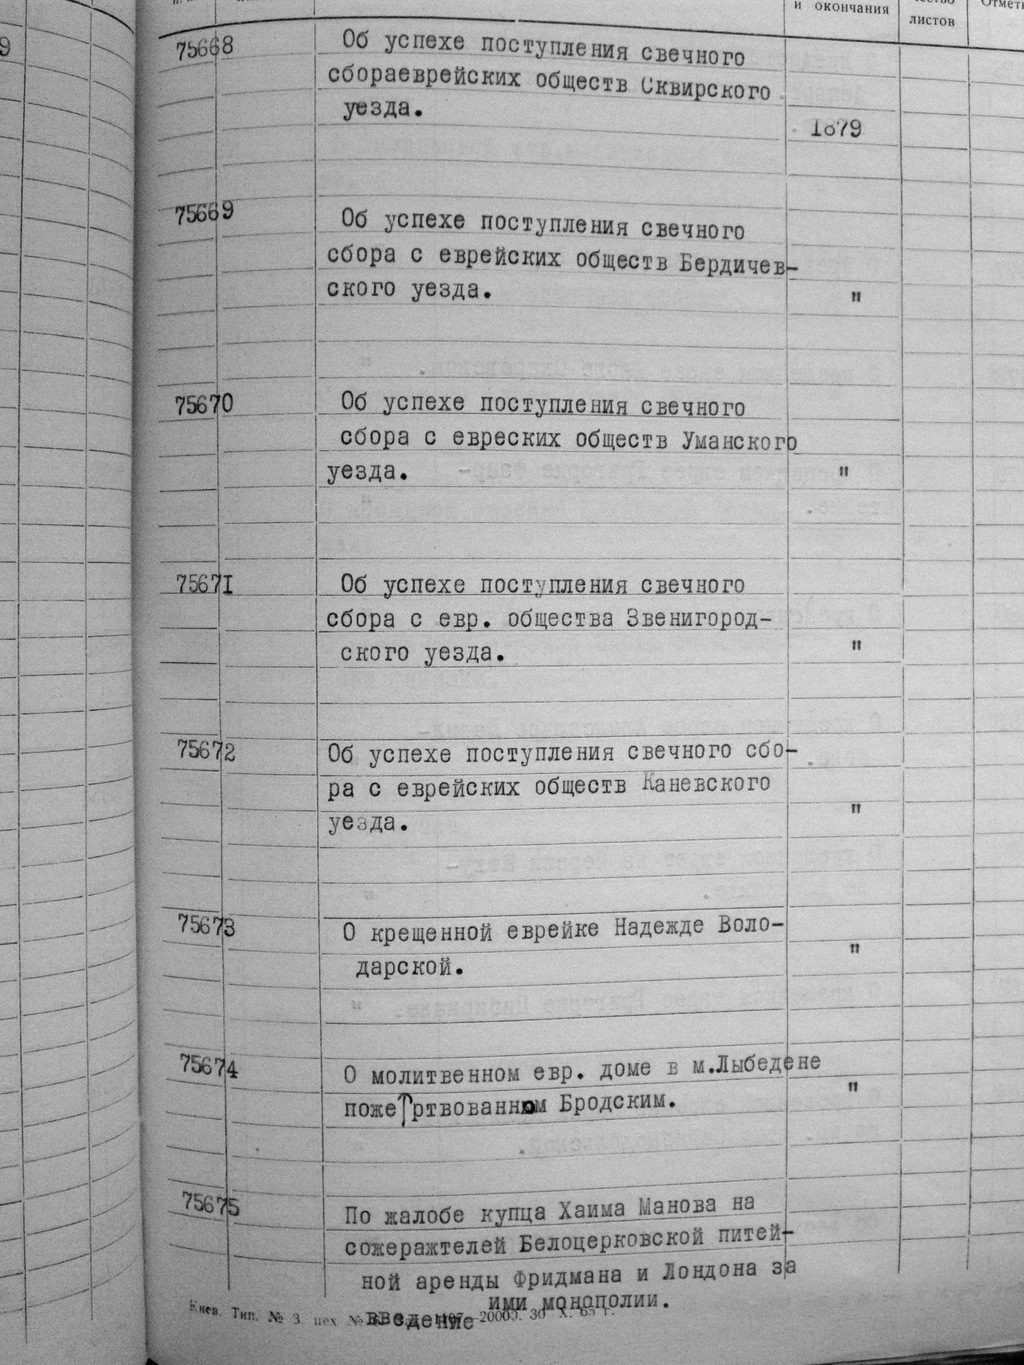 и окончания
листов
9
75668 Об успехе поступления свечного
сбораеврейских обществ Сквирского
уезда.
1879
75669 Об успехе поступления свечного
сбора с еврейских обществ Бердичев-
ского уезда. "
75670 Об успехе поступления свечного
сбора с евреских обществ Уманского
уезда. "
75671 Об успехе поступления свечного
сбора с евр. общества Звенигород-
ского уезда. "
75672 Об успехе поступления свечного сбо-
ра с еврейских обществ Каневского
уезда. "
75673 О крещенной еврейке Надежде Воло-
дарской. "
75674 О молитвенном евр. доме в м.Лыбедене
пожертвованном Бродским. "
75675 По жалобе купца Хаима Манова на
сожержтелей Белоцерковской питей-
ной аренды Фридмана и Лондона за
введение ими монополии.
Киев. Тип. № 3. цех №